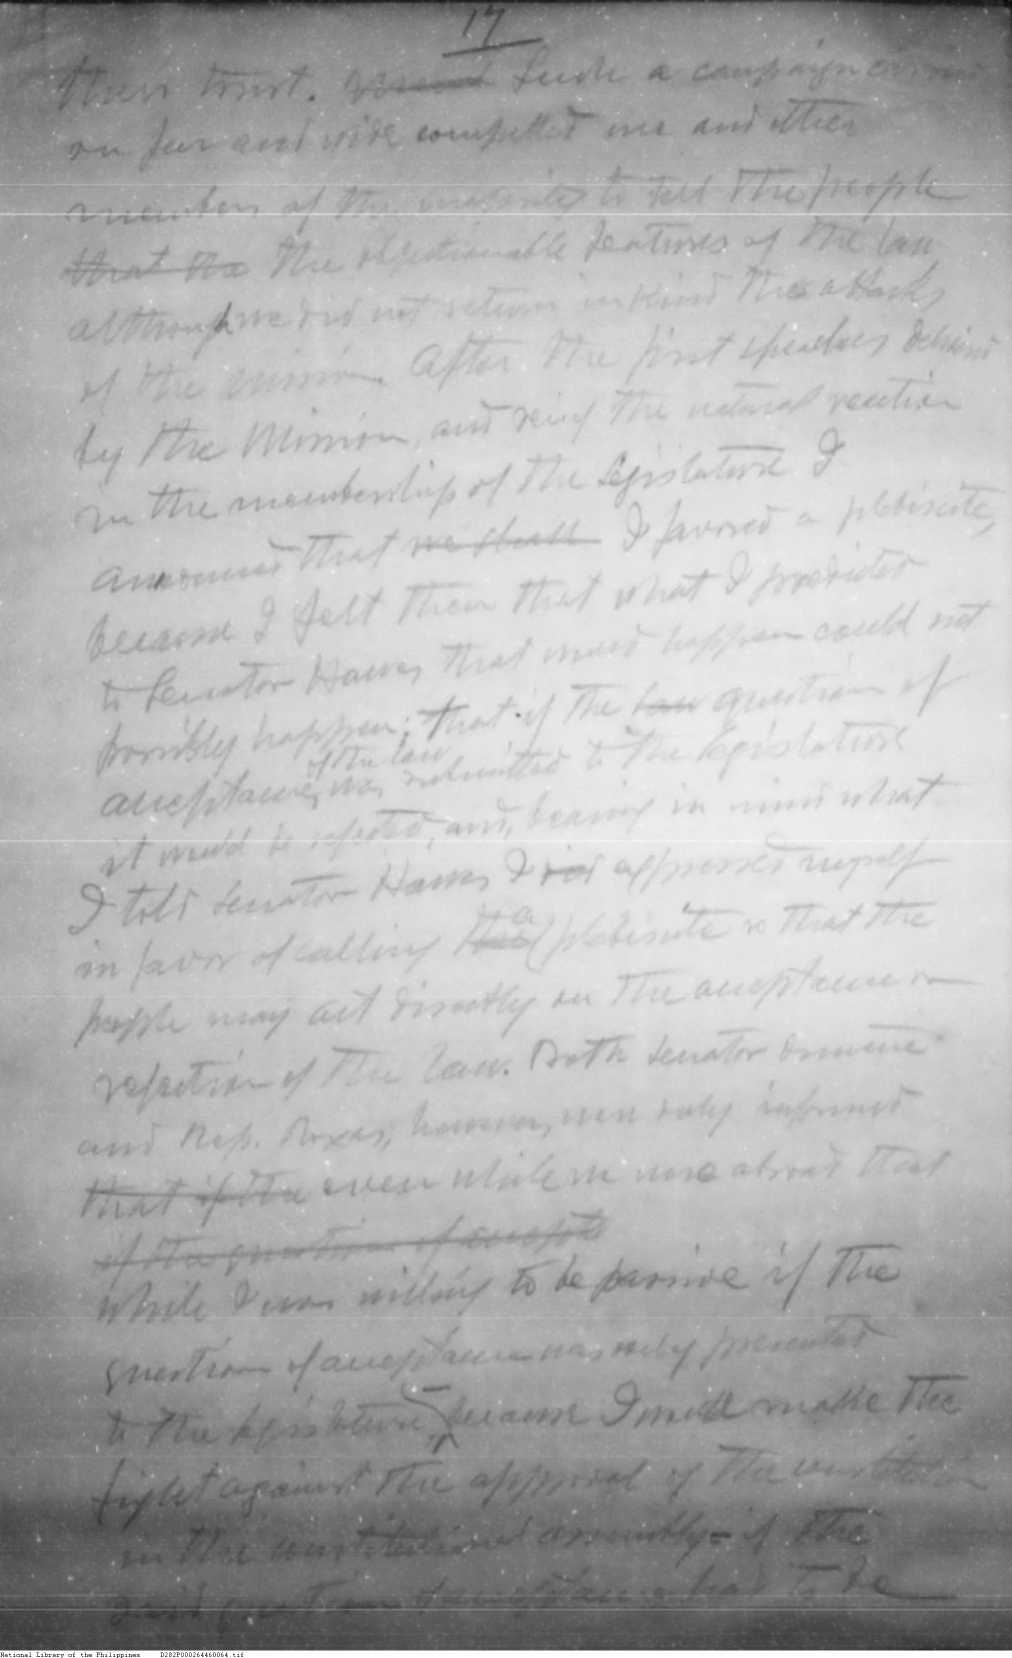 17
their trust. Such a campaign carried
on far and wide compelled me and other
members of the majority to tell the people
that the the objectionable features of the law
although we did not return in kind the attacks
of the mission. After the first speeches delivered
by the Mission, and seeing the natural reaction
in the membership of the Legislature I
announced that we shall I favored a plebiscite,
because I felt then that what I predicted
to Senator Hawes that would happen could not
possibly happen; that if the law question of
of the law
acceptance was submitted to the legislature
it would be rejected, and, bearing in mind what
I told Senator Hawes I did expressed myself
in favor of calling the a plebiscite so that the
people may act directly on the acceptance or
rejection of the law. Both Senator Osmeña
and Rep. Roxas, however, were duly informed
that if the even while we were abroad that
if the question of accepta
while I was willing to be passive if the
question of acceptance was only presented
to the legislature, because I would make the
fight against the approval of the constitution
in the constitutional assembly - if the
said question of acceptance had to be
National Library of the Philippines D282P000264460064.tif